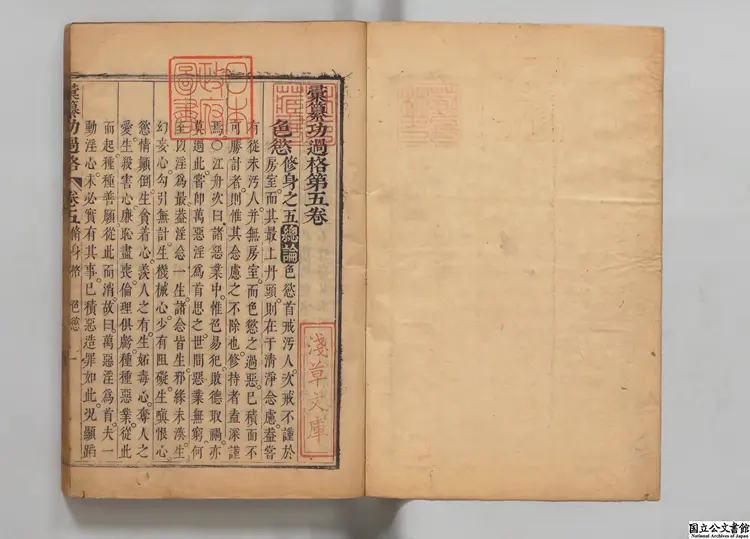 彙纂功過格第五卷
色慾修身之五總論色慾首戒汚人。次戒不謹於
房室。而其最上丹頭。則在于清淨念慮。蓋嘗
有從未汚人。并無房室。而色慾之過惡。已積而不
可勝計者。則惟其念慮之不除也。修持者盍深謹
焉。○江舟次曰諸惡業中。惟色易犯。敗德取禍。亦
莫過此。嘗卽萬惡淫爲首思之。世間惡業無窮。何
至以淫爲最。蓋淫念一生。諸念皆生。邪緣未湊。生
幻妄心。勾引無計。生機械心。少有阻礙。生瞋恨心。
慾情顚倒。生貪着心。羨人之有。生妬毒心。奪人之
愛。生殺害心。廉恥盡喪。倫理俱虧。種種惡業。從此
而起。種種善願。從此而消。故曰。萬惡淫爲首。夫一
動淫心。未必實有其事。已積惡造罪如此。況顯蹈
彙纂功過格 卷五 脩身格 色慾 一
日本政府圖書
淺草文庫
国立公文書館
National Archives of Japan